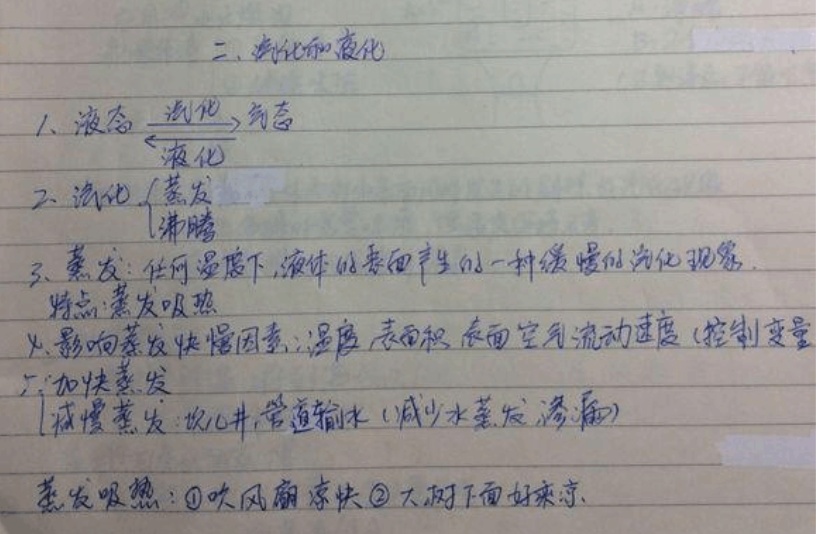 二、汽化和液化
1、液态 汽化 气态
液化
2、汽化 { 蒸发
沸腾
3、蒸发:任何温度下,液体的表面产生的一种缓慢的汽化现象.
特点:蒸发吸热
4、影响蒸发快慢因素:温度 表面积 表面空气流动速度(控制变量
5、加快蒸发
减慢蒸发:坎儿井,管道输水(减少水蒸发,渗漏)
蒸发吸热:①吹风扇凉快②大树下面好乘凉.